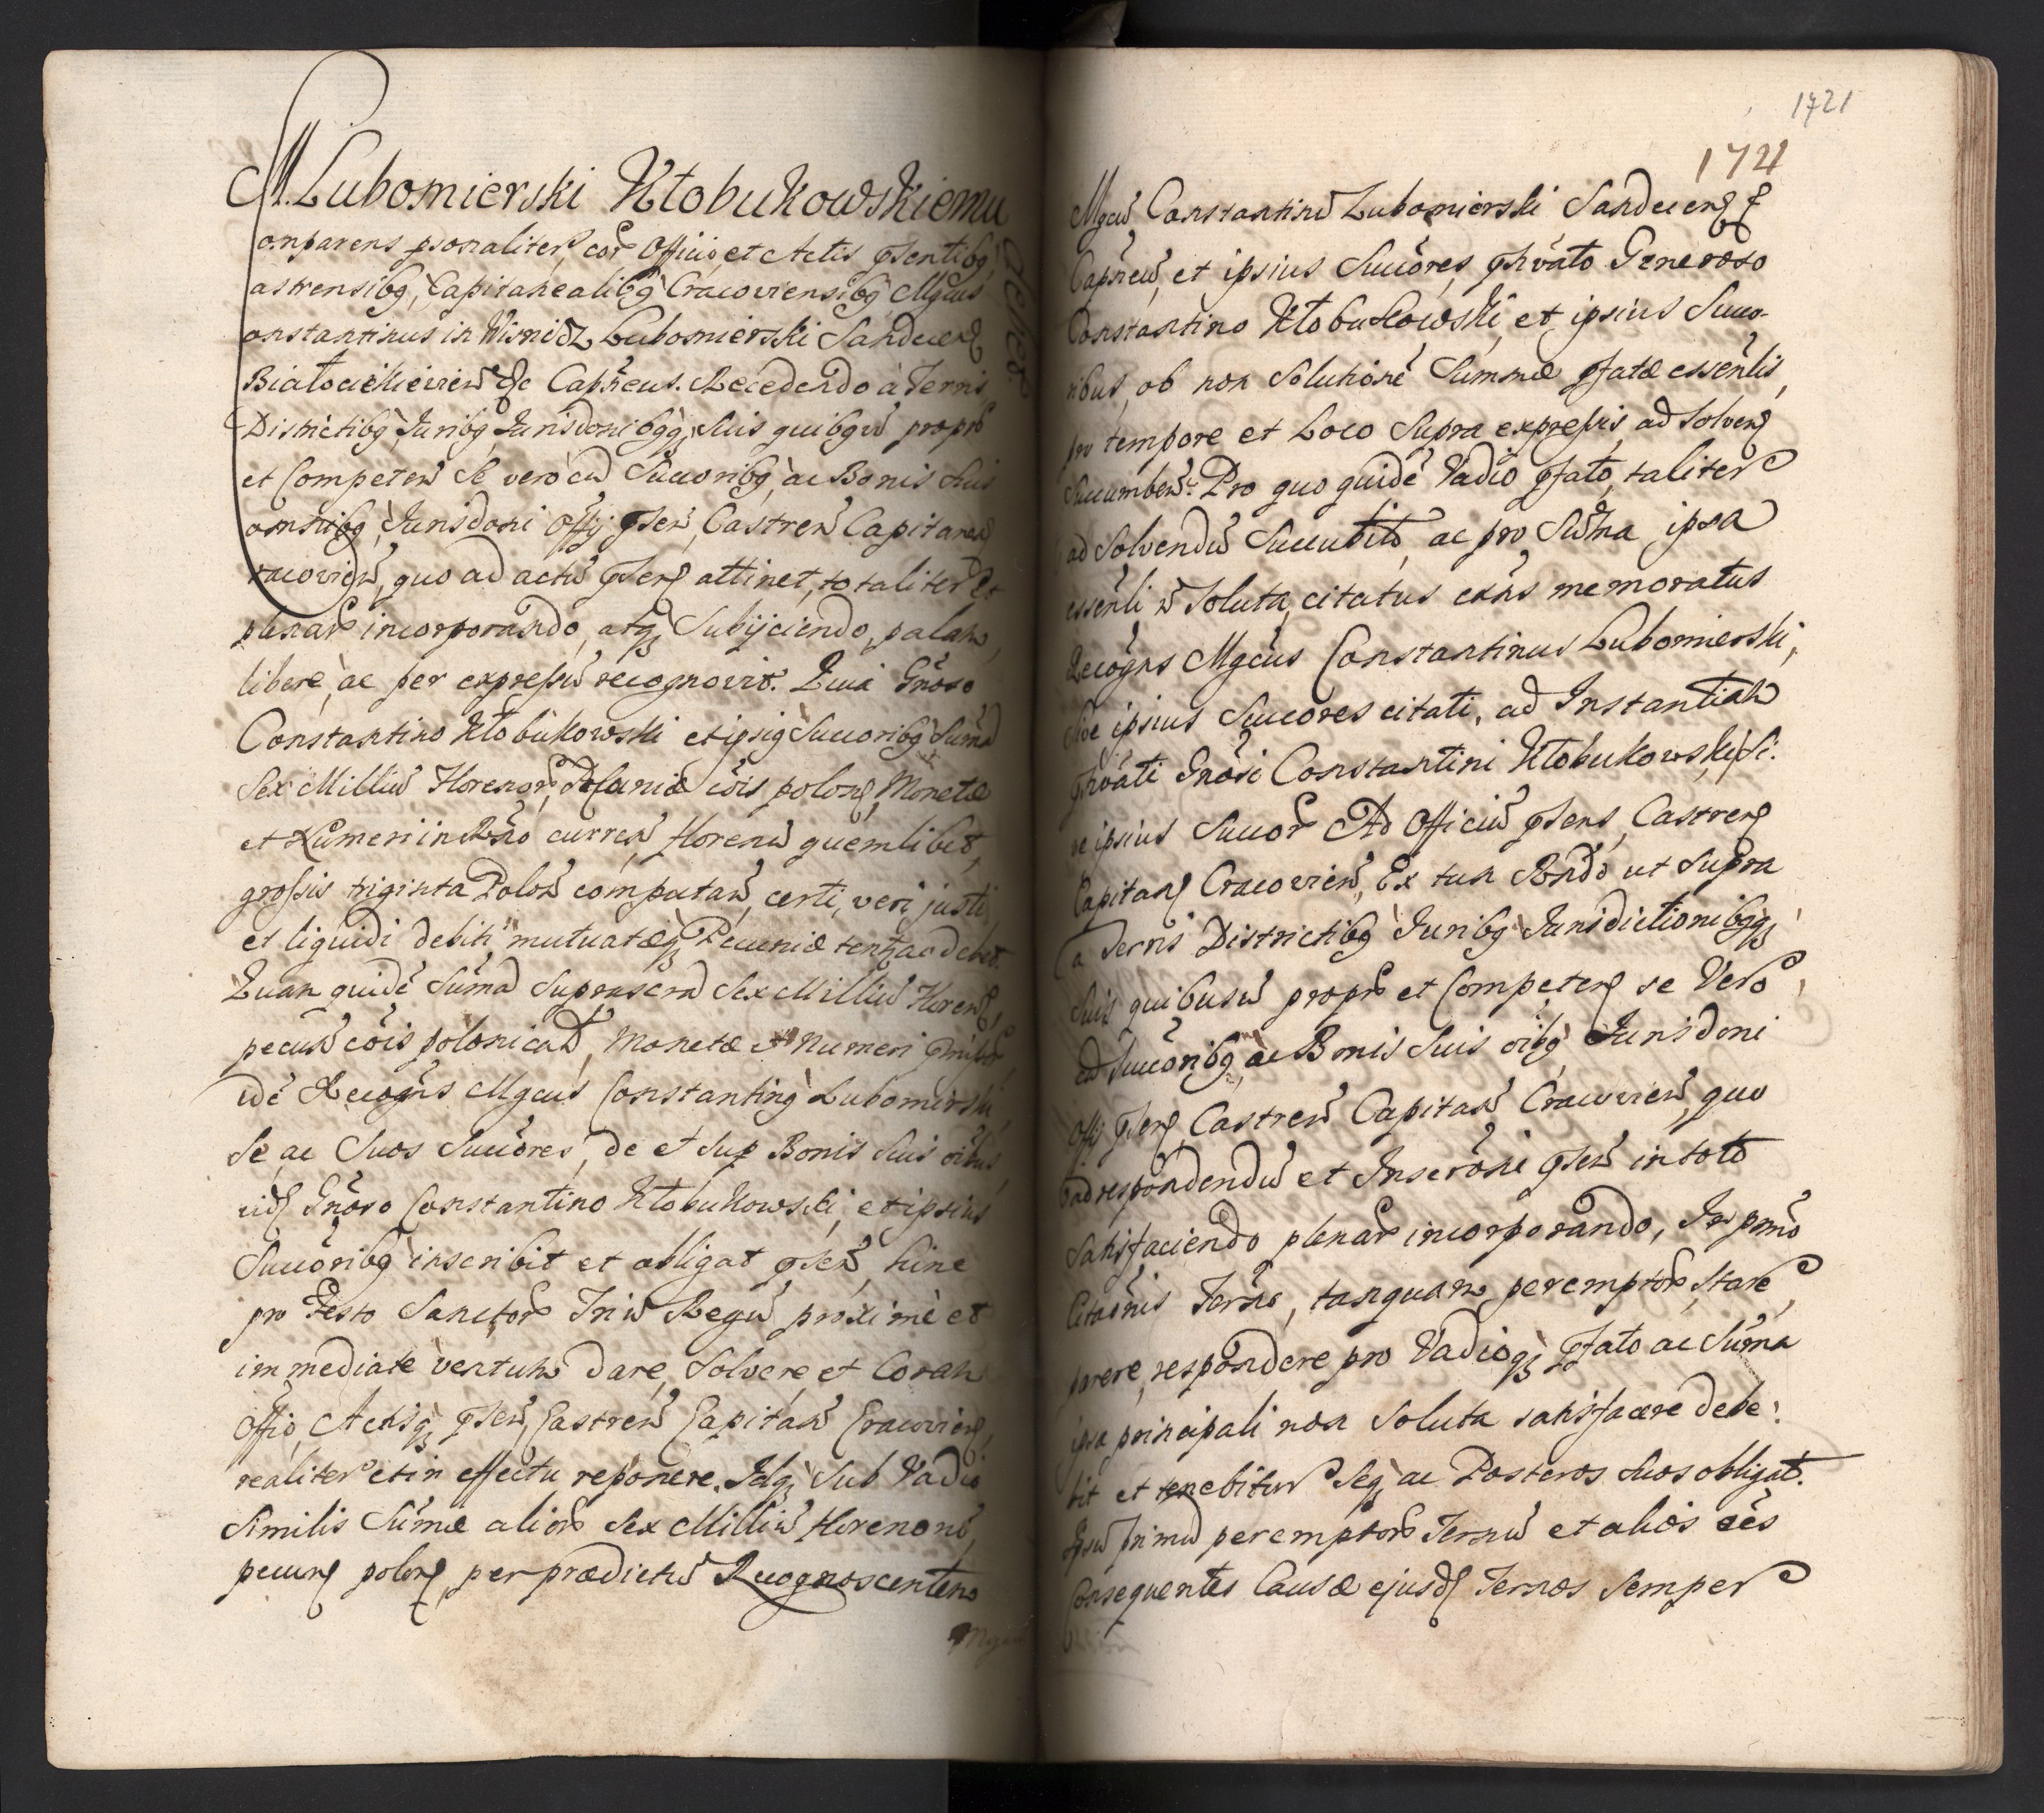 M. Lubomierski Kłobukowskiemu
omparens psonaliter cor Officio et Actis psentibq
astrensibq, Capitanealibq Cracoviensibq Mgcus
onstantinus in Wisnicz Lubomierski Sandecen
Białocerkievien &c Capneus. Recedendo à Terris
Districtibq Juribq Jurisdonibqq suis quibqvis propr
et Competen Se vero cu Succoribq, ac Bonis suis
omnibq, Jurisdoni Offij psen, Castren Capitanea
racovien, quo ad actu psen attinet, totaliter et
plenar incorporando, atq Subijciendo, palam,
libere, ac per expressu recognovit. Quia Gnoso
Constantino Kłobukowski et ipsiq Succoribq Suma
Sex Milliu Florenor, Pecuniæ cois polon, Monetæ
et Numeri in Regno curren, florenu quemlibet,
grossis triginta Polon computan, certi, veri, justi
et liquidi debiti mutuatæq Pecuniæ tentr ac debet.
Quan quide Suma Suprascra Sex Milliu Floren,
pecun cois polonical, Monetæ et Numeri pmissor,
ide Recogns Mgcus Constantinq Lubomirski,
Se, ac Suos Succores, de et Sup Bonis Suis oibus,
eid Gnoso Constantino Kłobukowski, et ipsius
Succoribq inscribit et obligat psen, hinc
pro Festo Sanctor Triu Regu proxime et
immediate ventur dare, Solvere, et Coram
Offio, Actisq psen, Castren Capitan Cracovien,
realiter et in effectu reponere. Idq Sub Vadio
Similis Sumæ alior Sex Milliu Florenor,
pecun polon, per prædictu Recognoscentem
Mgcu
1721
1721
Mgcu Constantinu Lubomierski Sandecen &
Capneu, et ipsius Succores, phvato Generoso
Constantino Kłobukowski, et ipsius Succo-
ribus, ob non Solutione Summæ pfatæ essenlis,
pro tempore et Loco Supra expressis, ad Solven
Succumben. Pro quo quide Vadio pfato, taliter
ad Solvendu Succubito, ac pro Suma ipsa
essenli n Soluta, citatus exns memoratus
Recogns Mgcus Constantinus Lubomierski,
Sive ipsius Succores citati, ad Instantiam
phvati Gnosi Constantini Kłobukowski, Si-
ve ipsius Succor Ad Officiu psens, Castren
Capitan Cracovien, Ex tun Rndo ut Supra
a Terris Districtibq Juribq Jurisdictionibqq
Suis quibusvis propr et Competen se Vero
cu Succoribq, ac Bonis Suis oibq Jurisdoni
Offij psen, Castren Capitan Cracovien, quo
ad respondendu et Inscroni psen in toto
Satisfaciendo plenar incorporando, In pmo
Citaonis Terno, tanquam peremptor, Stare,
parere, respondere pro Vadioq pfato ac Suma
ipsa principali non Soluta satisfacere debe-
bit et tenebitur Seq, ac Posteros Suos obligat.
Ipsu Primu peremptor Ternu et alios oes
Consequentes Causæ ejusd Ternos Semper